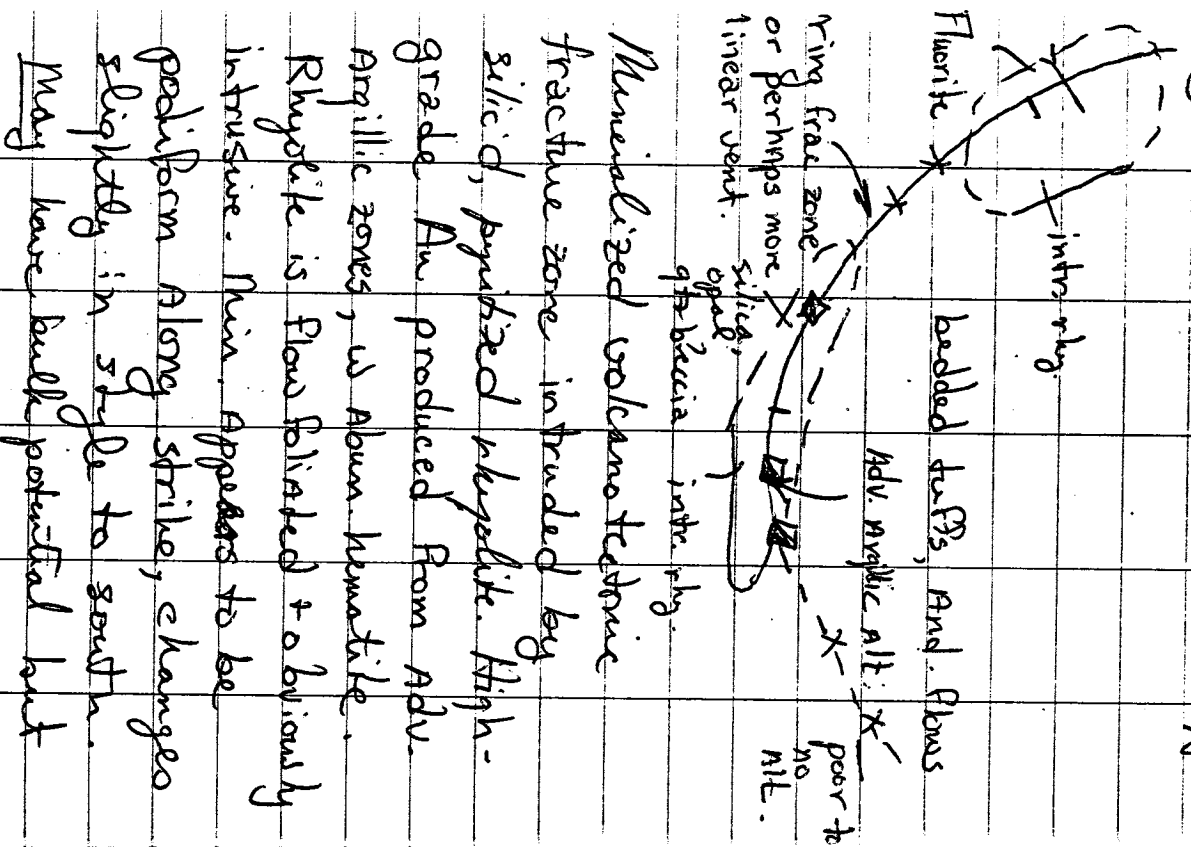 N
intr. rhy.
Fluorite
bedded tuffs, And. flows
ring frac zone
or perhaps more
linear vent.
Adv. Argillic alt.
poor to
no
Alt.
silica,
opal,
qtz breccia
intr. rhy.
Mineralized volcanotectonic
fracture zone intruded by
silicid, pyritized rhyolite. High-
grade Au produced from Adv.
Argillic zones, w Abun. hematite.
Rhyolite is flow foliated + obviously
intrusive. Min. Appears to be
podiform Along strike, changes
slightly in style to south.
May have bulk potential but